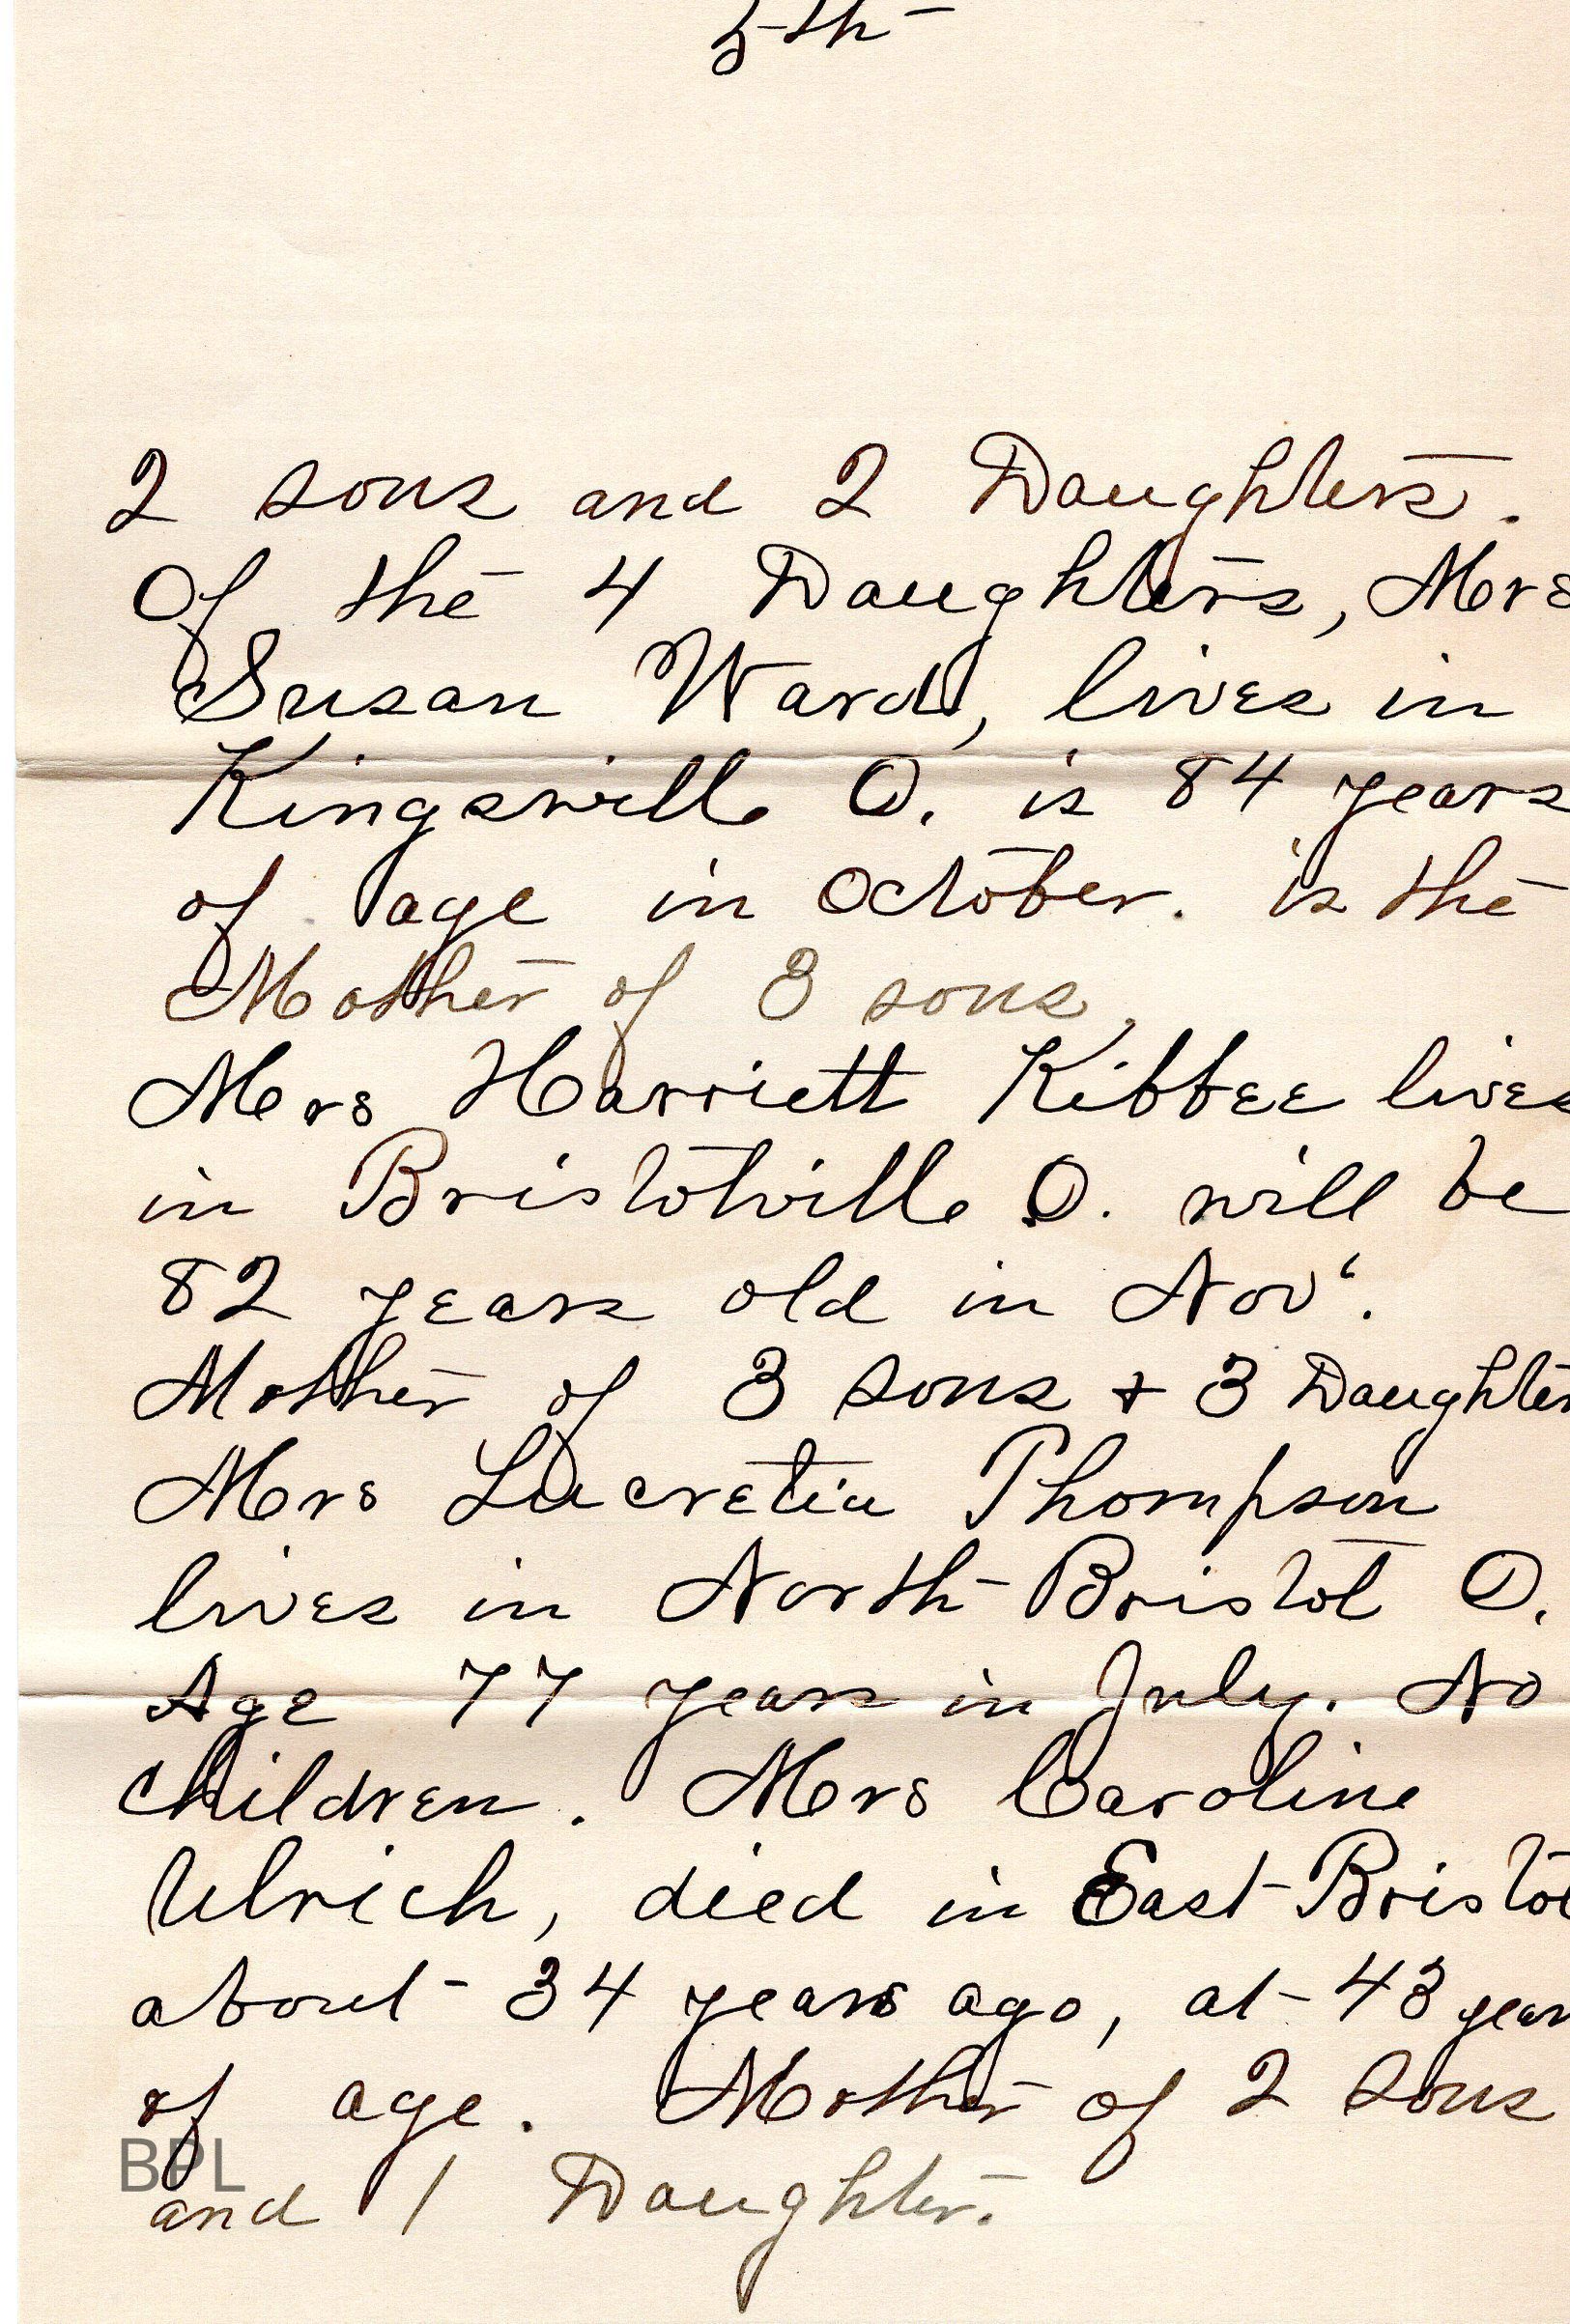 5th
2 sons and 2 Daughters.
Of the 4 Daughters, Mrs
Susan Ward, lives in
Kingsville O. is 84 years
of age in October. is the
Mother of 3 sons,
Mrs Harriett Kibbee lives
in Bristolville O. will be
82 years old in Nov'.
Mother of 3 sons & 3 Daughters
Mrs Lucretia Thompson
lives in North Bristol O.
Age 77 years in July. No
children. Mrs Caroline
Ulrich, died in East Bristol
about 34 years ago, at 43 years
of age. Mother of 2 sons
BPL
and 1 Daughter.